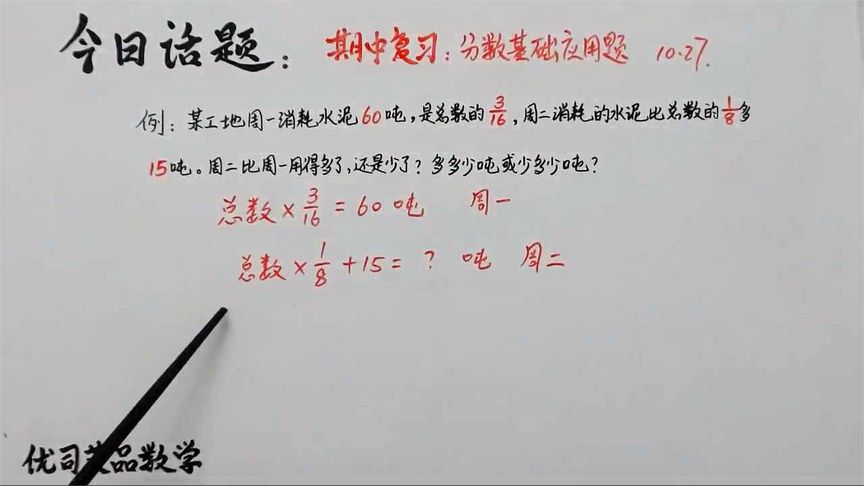 今日话题： 期中复习：分数基础应用题 10.27.
例：某工地周一消耗水泥60吨，是总数的3/16，周二消耗的水泥比总数的1/8多
15吨。周二比周一用得多了，还是少了？多多少吨或少多少吨？
总数×3/16=60吨 周一
总数×1/8+15=？ 吨 周二
优司 品数学